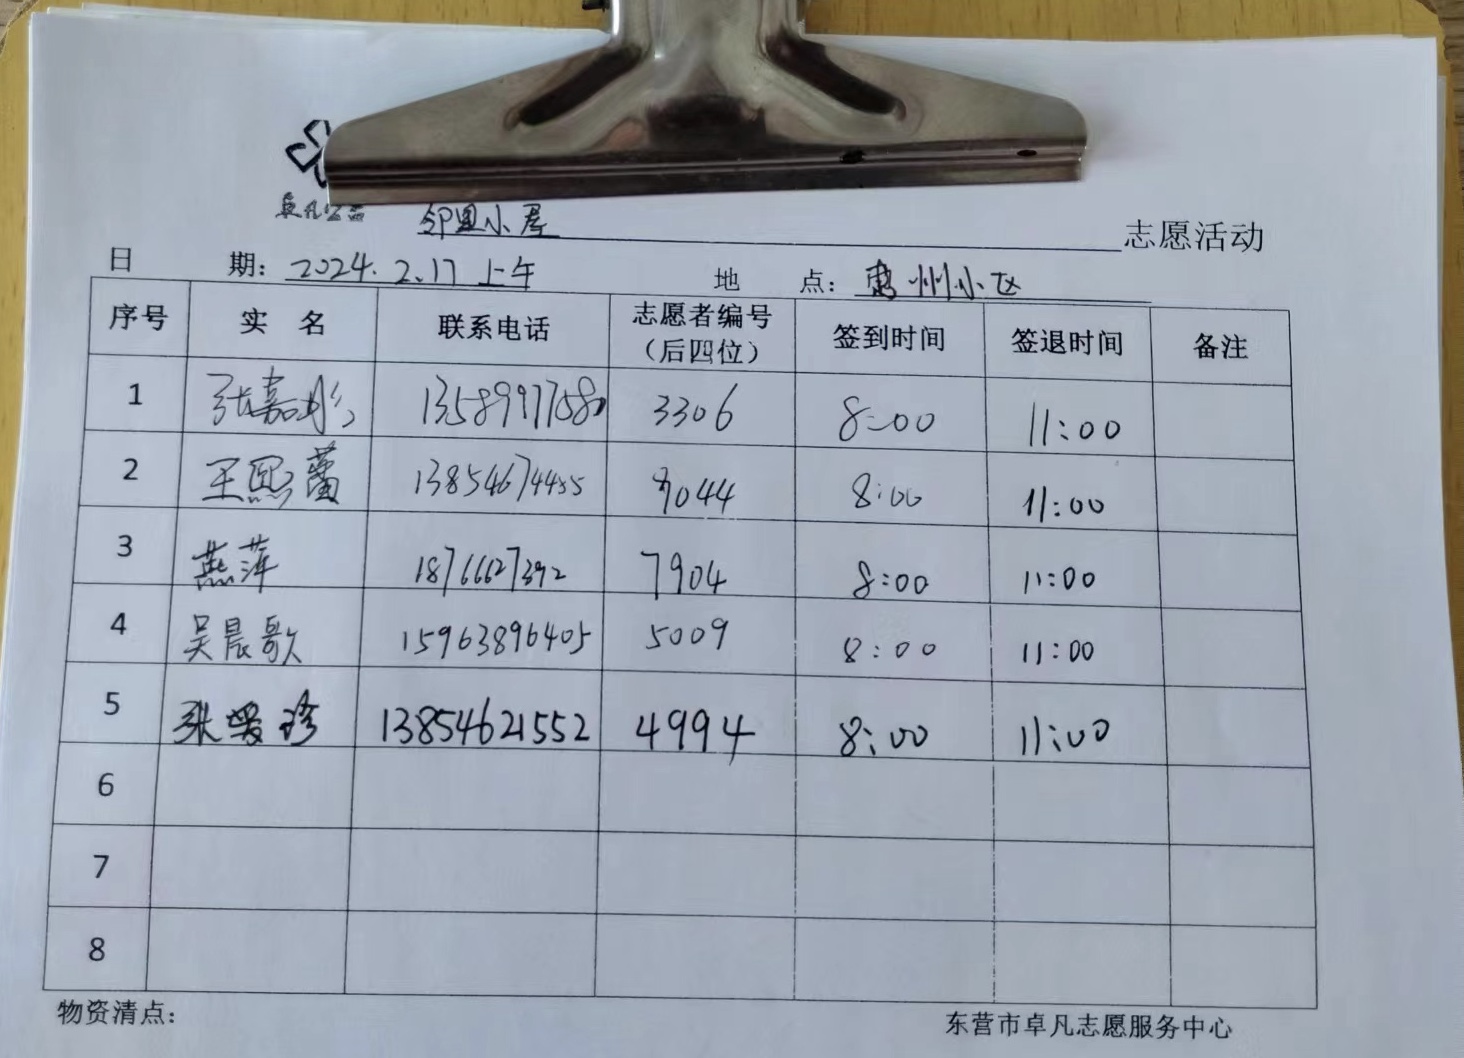 卓凡公益
邻里小屋 志愿活动
日 期：2024.2.17 上午 地 点：惠州小区
序号 实 名 联系电话 志愿者编号（后四位） 签到时间 签退时间 备注
1 张嘉彬 3306 8:00 11:00
2 王熙蕾 13854674455 9044 8:00 11:00
3 燕萍 18766627392 7904 8:00 11:00
4 吴晨歌 15963896405 5009 8:00 11:00
5 张爱珍 13854621552 4994 8:00 11:00
6
7
8
物资清点： 东营市卓凡志愿服务中心